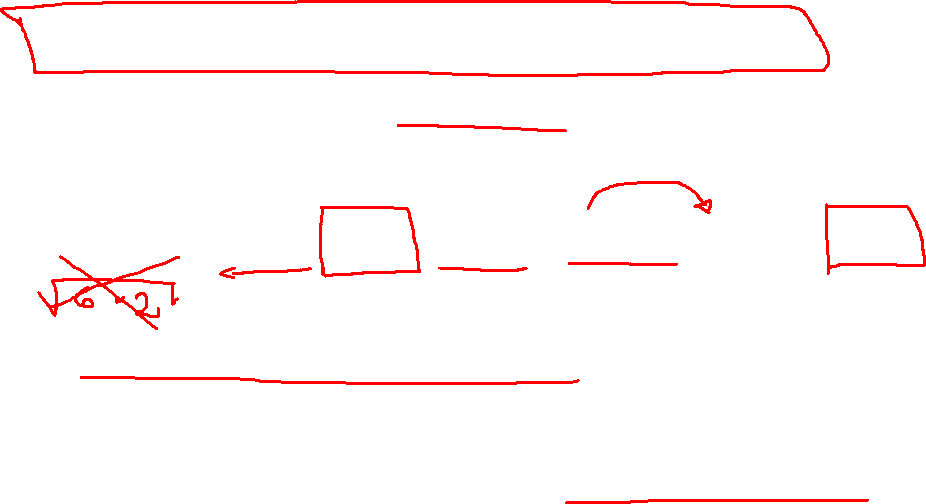 √6.2